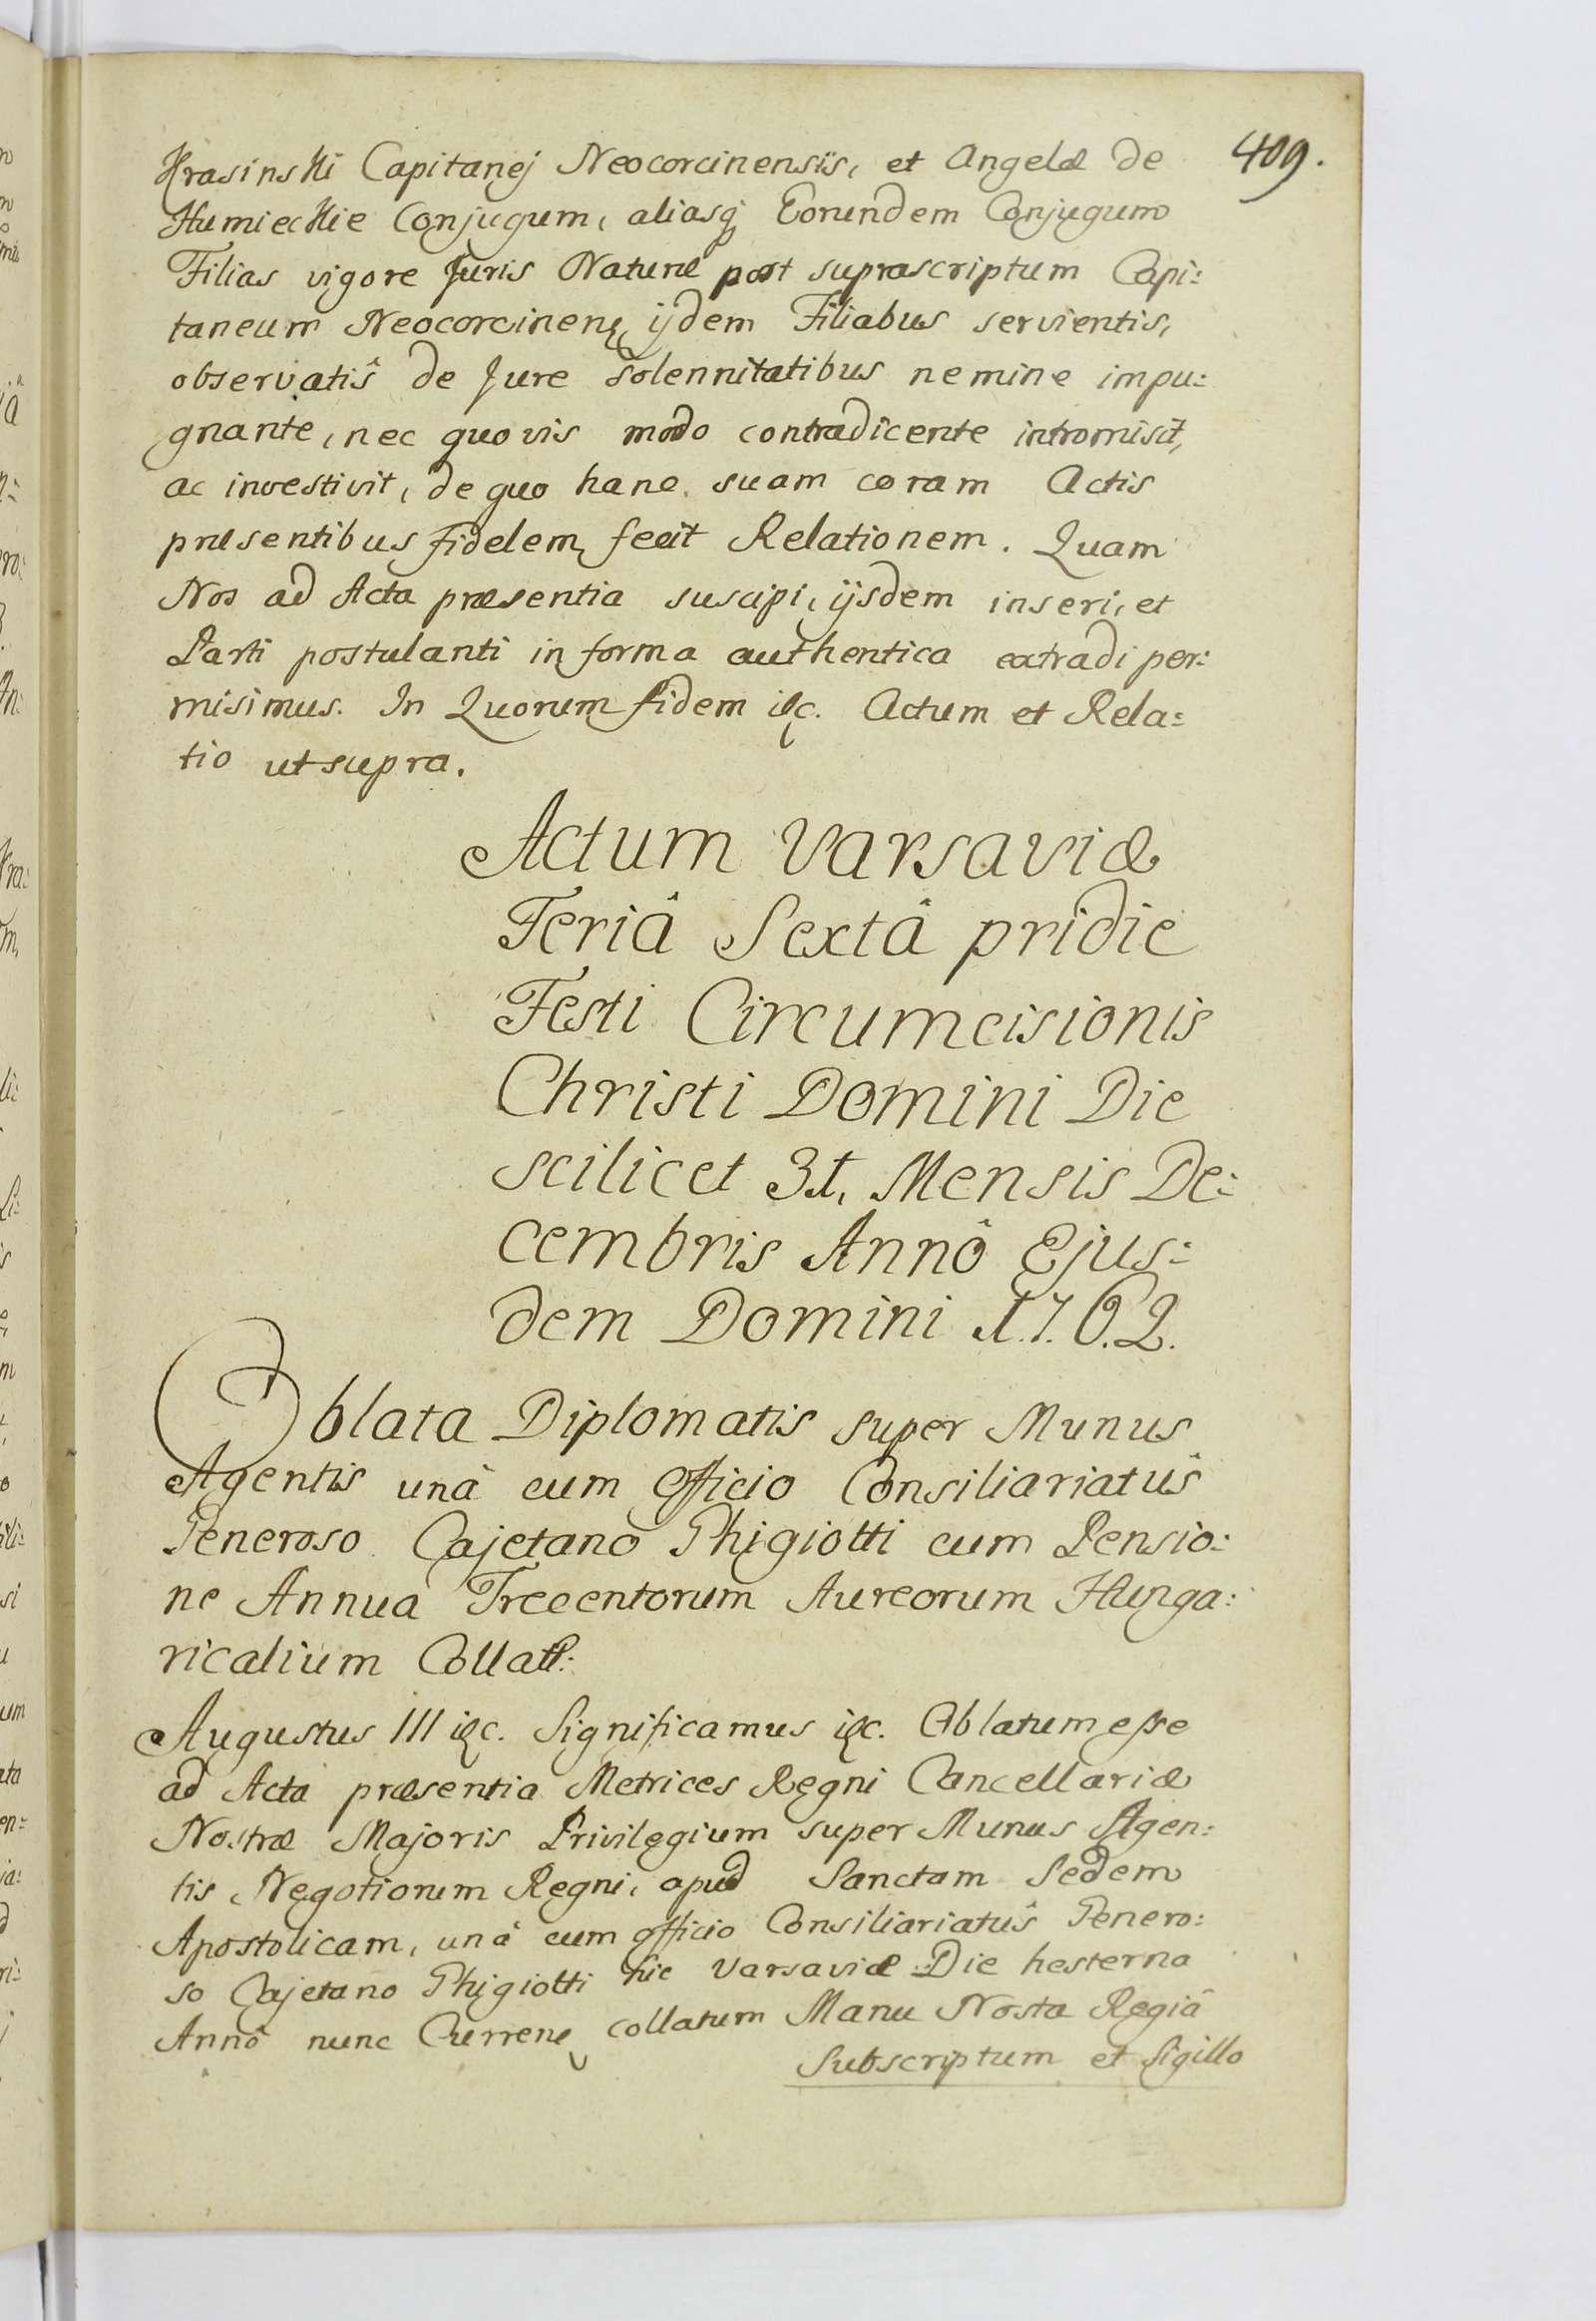 409.
Krasinski Capitanej Neocorcinensis, et Angelæ de
Humieckie Conjugum, aliasq; Eorundem Conjugum
Filias vigore Juris Naturæ post suprascriptum Capi:
taneum Neocorcinen: ijdem Filiabus servientis,
observatîs de Jure Solennitatibus nemine impu:
gnante, nec quovis modo contradicente intromisit,
ac investivit, de quo hanc suam coram Actis
præsentibus fidelem fecit Relationem. Quam
Nos ad Acta præsentia suscipi, ijsdem inseri, et
Parti postulanti in forma authentica extradi per:
misimus. In Quorum fidem etc. Actum et Rela:
tio ut supra.
Actum Varsaviæ
Feriâ Sextâ pridie
Festi Circumcisionis
Christi Domini Die
scilicet 31, Mensis De:
cembris Annô Ejus:
dem Domini 1.7.6.2.
Oblata Diplomatis super Munus
Agentis unâ cum Officio Consiliariatûs
Generoso Cajetano Ghigiotti cum Pensio:
ne Annua Trecentorum Aureorum Hunga:
ricalium Collati:
Augustus III etc. Significamus etc. Oblatum esse
ad Acta præsentia Metrices Regni Cancellariæ
Nostræ Majoris Privilegium super Munus Agen:
tis, Negotiorum Regni, apud Sanctam Sedem
Apostolicam, unâ cum officio Consiliariatûs Genero:
so Cajetano Ghigiotti hic Varsaviæ Die hesterna
Annô nunc Curren: collatum Manu Nosta Regiâ
Subscriptum et Sigillo